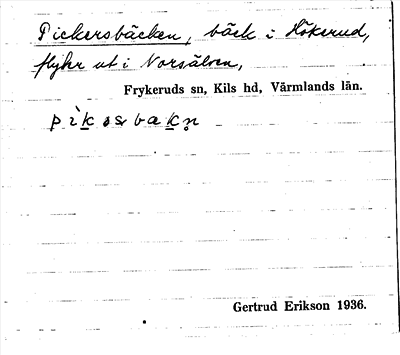 Pickersbäcken, bäck i Hökerud,
flyter ut i Norsälven,
Frykeruds sn, Kils hd, Värmlands län.
Gertrud Erikson 1936.